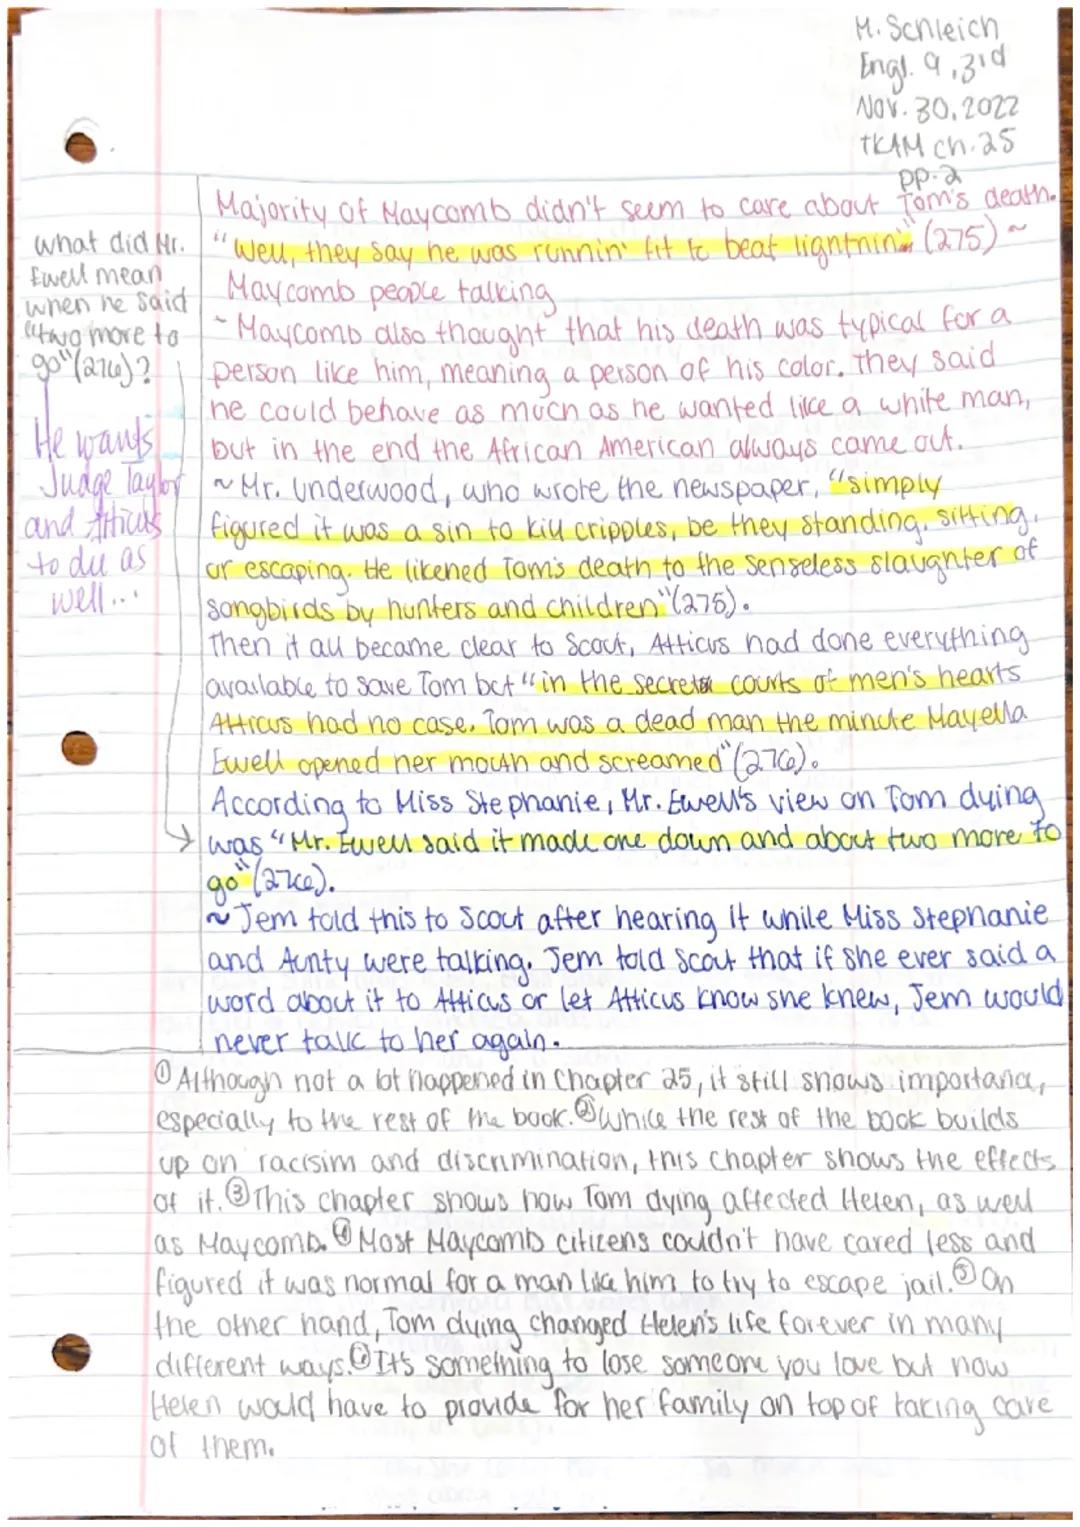 M. Schleich
Engl. 9, 3rd
Nov. 30, 2022
TKAM ch. 25
pp. 2
what did Mr.
Ewell mean
when he said
"two more to
go" (276)?
He wants
Judge Taylor
and Atticus
to die as
well...
Majority of Maycomb didn't seem to care about Tom's death.
"Well, they say he was runnin' fit to beat lightnin'" (275) ~
Maycomb people talking
- Maycomb also thought that his death was typical for a
person like him, meaning a person of his color. They said
he could behave as much as he wanted like a white man,
but in the end the African American always came out.
~ Mr. Underwood, who wrote the newspaper, "simply
figured it was a sin to kill cripples, be they standing, sitting,
or escaping. He likened Tom's death to the senseless slaughter of
songbirds by hunters and children" (275).
Then it all became clear to Scout, Atticus had done everything
available to save Tom but "in the secret courts of men's hearts
Atticus had no case. Tom was a dead man the minute Mayella
Ewell opened her mouth and screamed" (276).
According to Miss Stephanie, Mr. Ewell's view on Tom dying
was "Mr. Ewell said it made one down and about two more to
go" (276).
~ Jem told this to Scout after hearing it while Miss Stephanie
and Aunty were talking. Jem told Scout that if she ever said a
word about it to Atticus or let Atticus know she knew, Jem would
never talk to her again.
① Although not a lot happened in Chapter 25, it still shows importance,
especially to the rest of the book. ② While the rest of the book builds
up on racisim and discrimination, this chapter shows the effects
of it. ③ This chapter shows how Tom dying affected Helen, as well
as Maycomb. ④ Most Maycomb citizens couldn't have cared less and
figured it was normal for a man like him to try to escape jail. ⑤ On
the other hand, Tom dying changed Helen's life forever in many
different ways. ⑥ It's something to lose someone you love but now
Helen would have to provide for her family on top of taking care
of them.